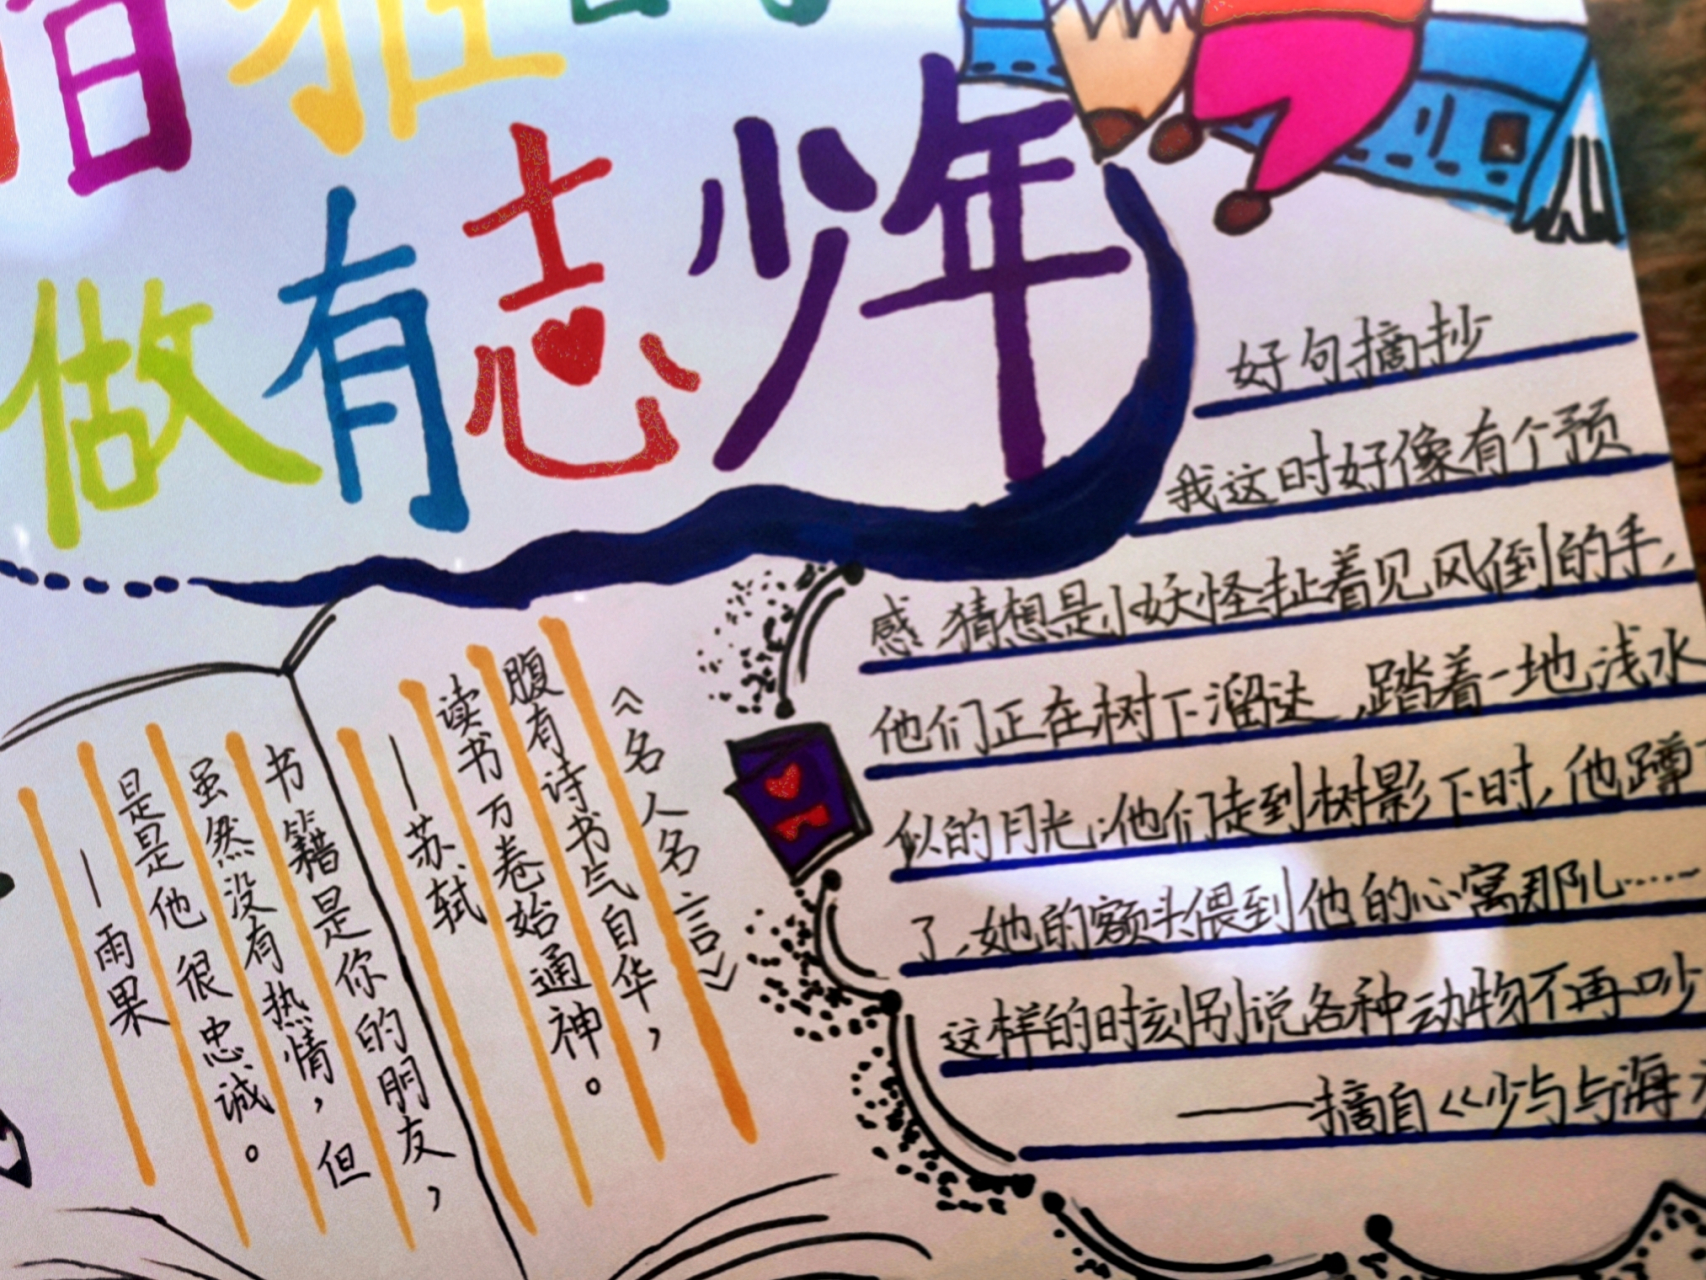 做有志少年
好句摘抄
我这时好像有个预
感,猜想是小妖怪扯着见风倒的手,
他们正在树下溜达,踏着一地浅水
似的月光;他们走到树影下时,他蹲
了,她的额头偎到他的心窝那儿……
这样的时刻别说各种动物不再吵
——摘自《少年与海
《名人名言》
腹有诗书气自华,
读书万卷始通神。
—苏轼
书籍是你的朋友,
虽然没有热情,但
是是他很忠诚。
—雨果